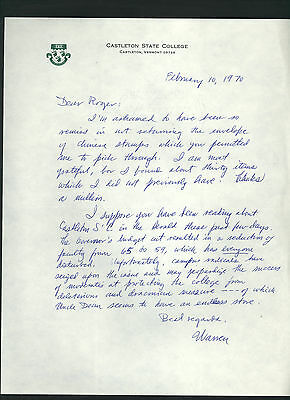 CASTLETON STATE COLLEGE
CASTLETON, VERMONT 05735
February 10, 1970
Dear Roger:
I'm ashamed to have been so
remiss in not returning the envelope
of Chinese stamps which you permitted
me to pick through. I am most
grateful, for I found about thirty items
which I did not previously have! Thanks
a million.
I suppose you have been reading about
Castleton S.C. in the Herald these past few days.
The Governor's budget cut resulted in a reduction of
faculty from 65 to 59, which has everyone
disturbed. Unfortunately, campus radicals have
seized upon the issue and may jeopardize the success
of moderates at protecting the college from
deleterious and draconian measures --- of which
Uncle Dean seems to have an endless store.
Best regards,
Warren